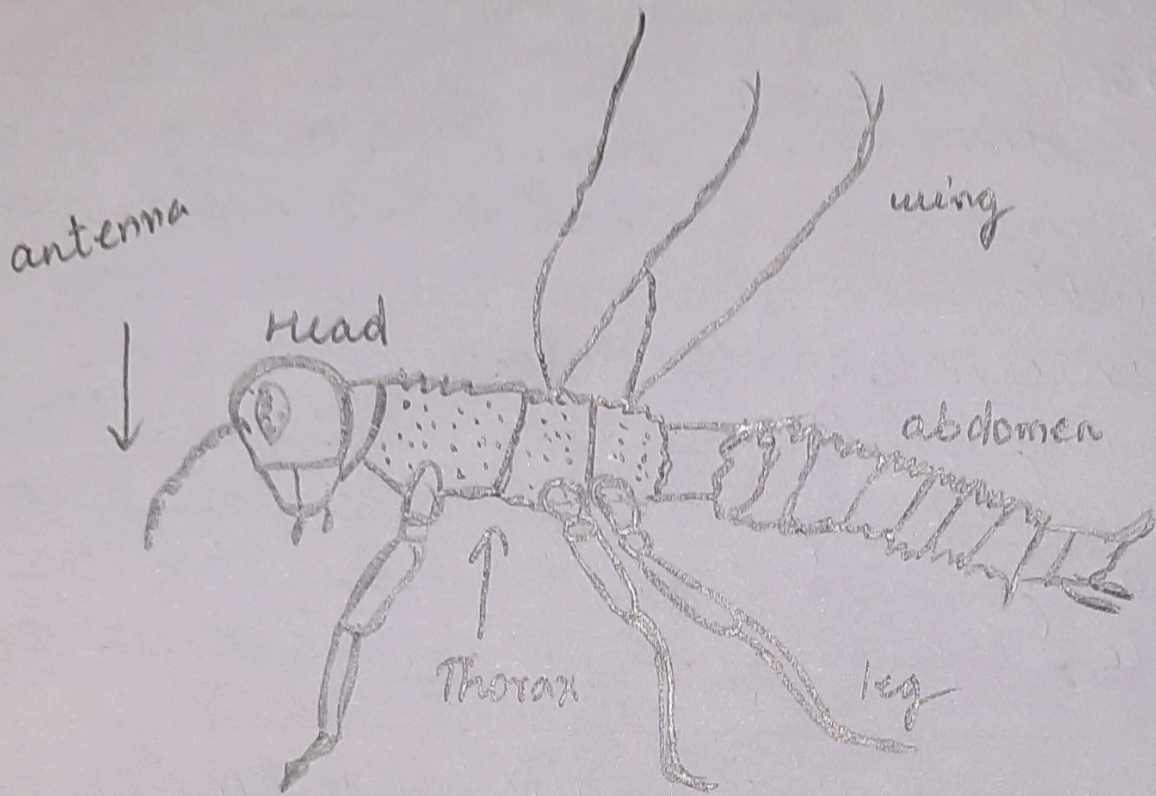 antenna
Head
wing
abdomen
Thorax
leg